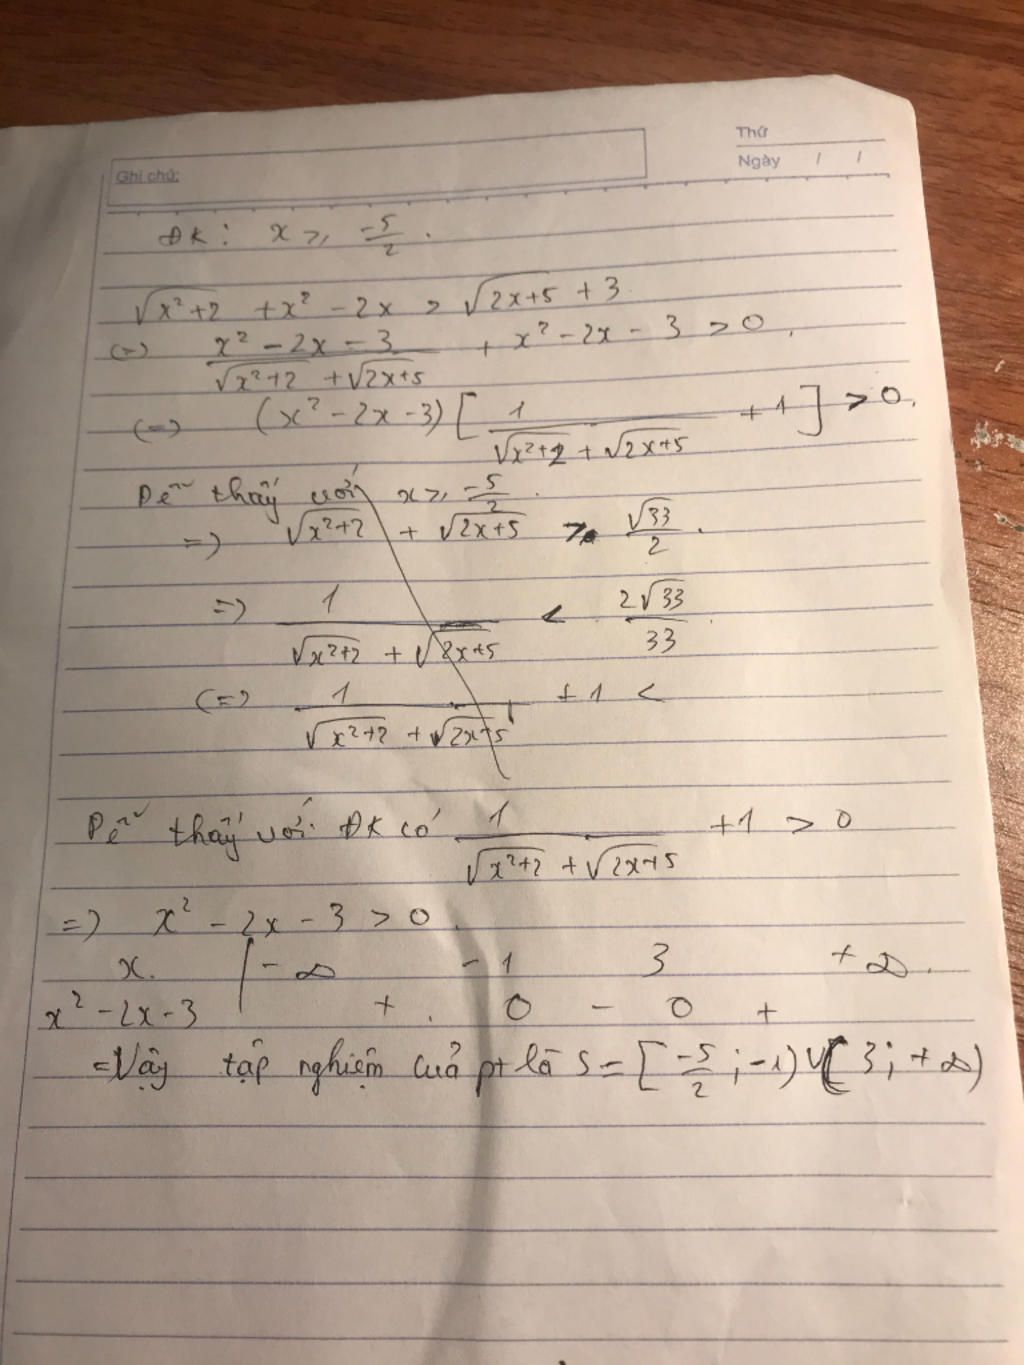 Thứ
Ngày / /
Ghi chú:
ĐK: x ⩾ -5/2.
√(x²+2) + x² - 2x > √(2x+5) + 3
(=) (x² - 2x - 3)/(√(x²+2) + √(2x+5)) + x² - 2x - 3 > 0.
(=) (x² - 2x - 3) [1/(√(x²+2) + √(2x+5)) + 1] > 0.
Dễ thấy với x ⩾ -5/2.
=) √(x²+2) + √(2x+5) > √33/2.
=) 1/(√(x²+2) + √(2x+5)) < 2√33/33
(=) 1/(√(x²+2) + √(2x+5)) + 1 <
Dễ thấy với ĐK có 1/(√(x²+2) + √(2x+5)) + 1 > 0
=) x² - 2x - 3 > 0.
x. | -∞ -1 3 +∞.
x² - 2x - 3 | + . 0 - 0 +
=Vậy tập nghiệm cuả pt là S = [-5/2; -1) ∪ (3; +∞)